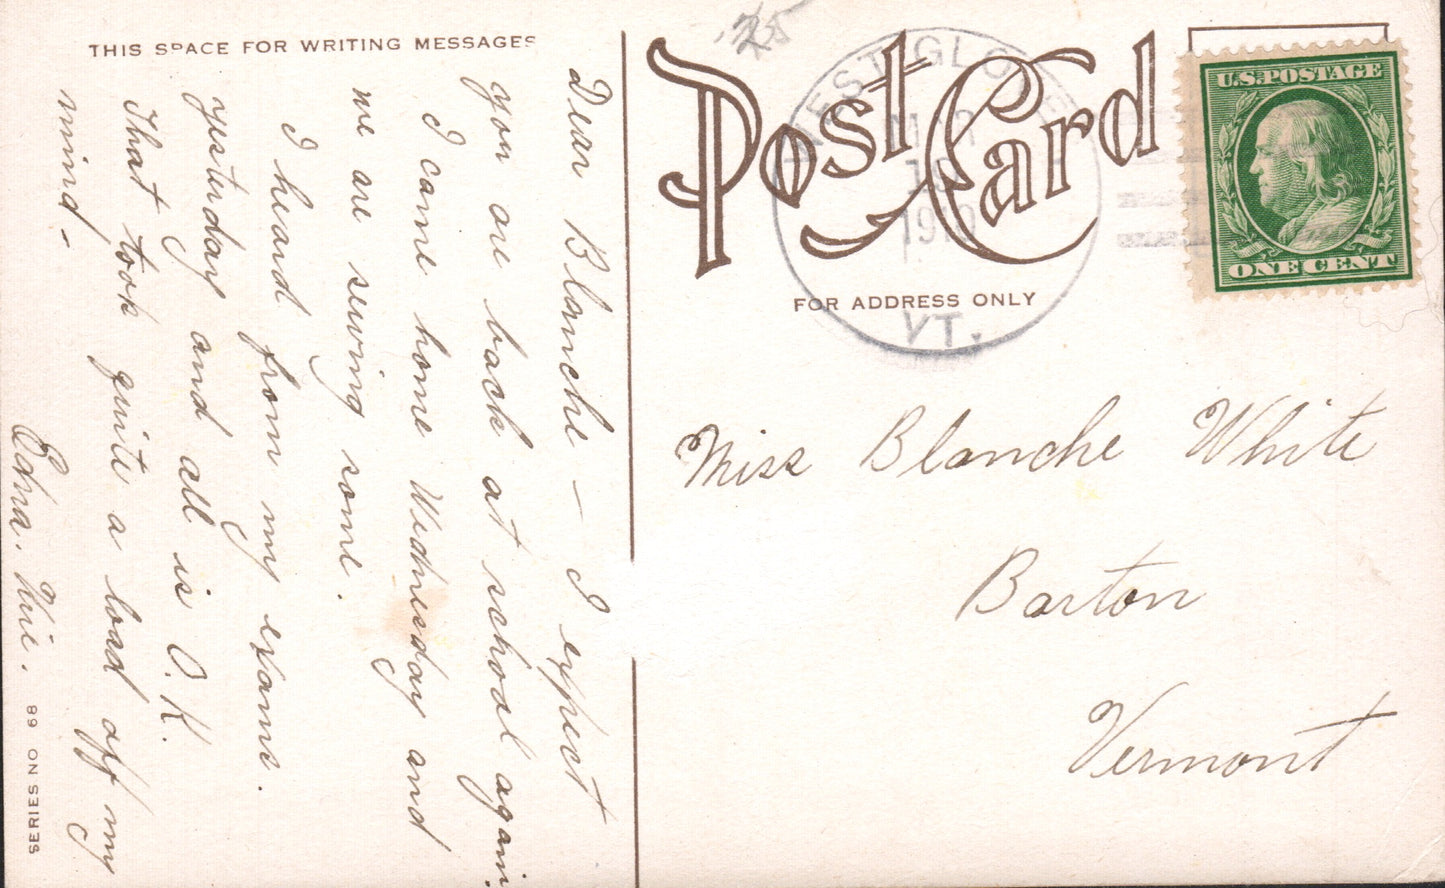 THIS SPACE FOR WRITING MESSAGES
Dear Blanche — I expect
you are back at school again.
I came home Wednesday and
we are sewing some.
I heard from my exams.
yesterday and all is O.K.
That took quite a load off my
mind –
Edna.
SERIES NO 68
25
Post Card
FOR ADDRESS ONLY
WEST GLOVER
10
1910
VT.
U.S. POSTAGE
ONE CENT
Miss Blanche White
Barton
Vermont